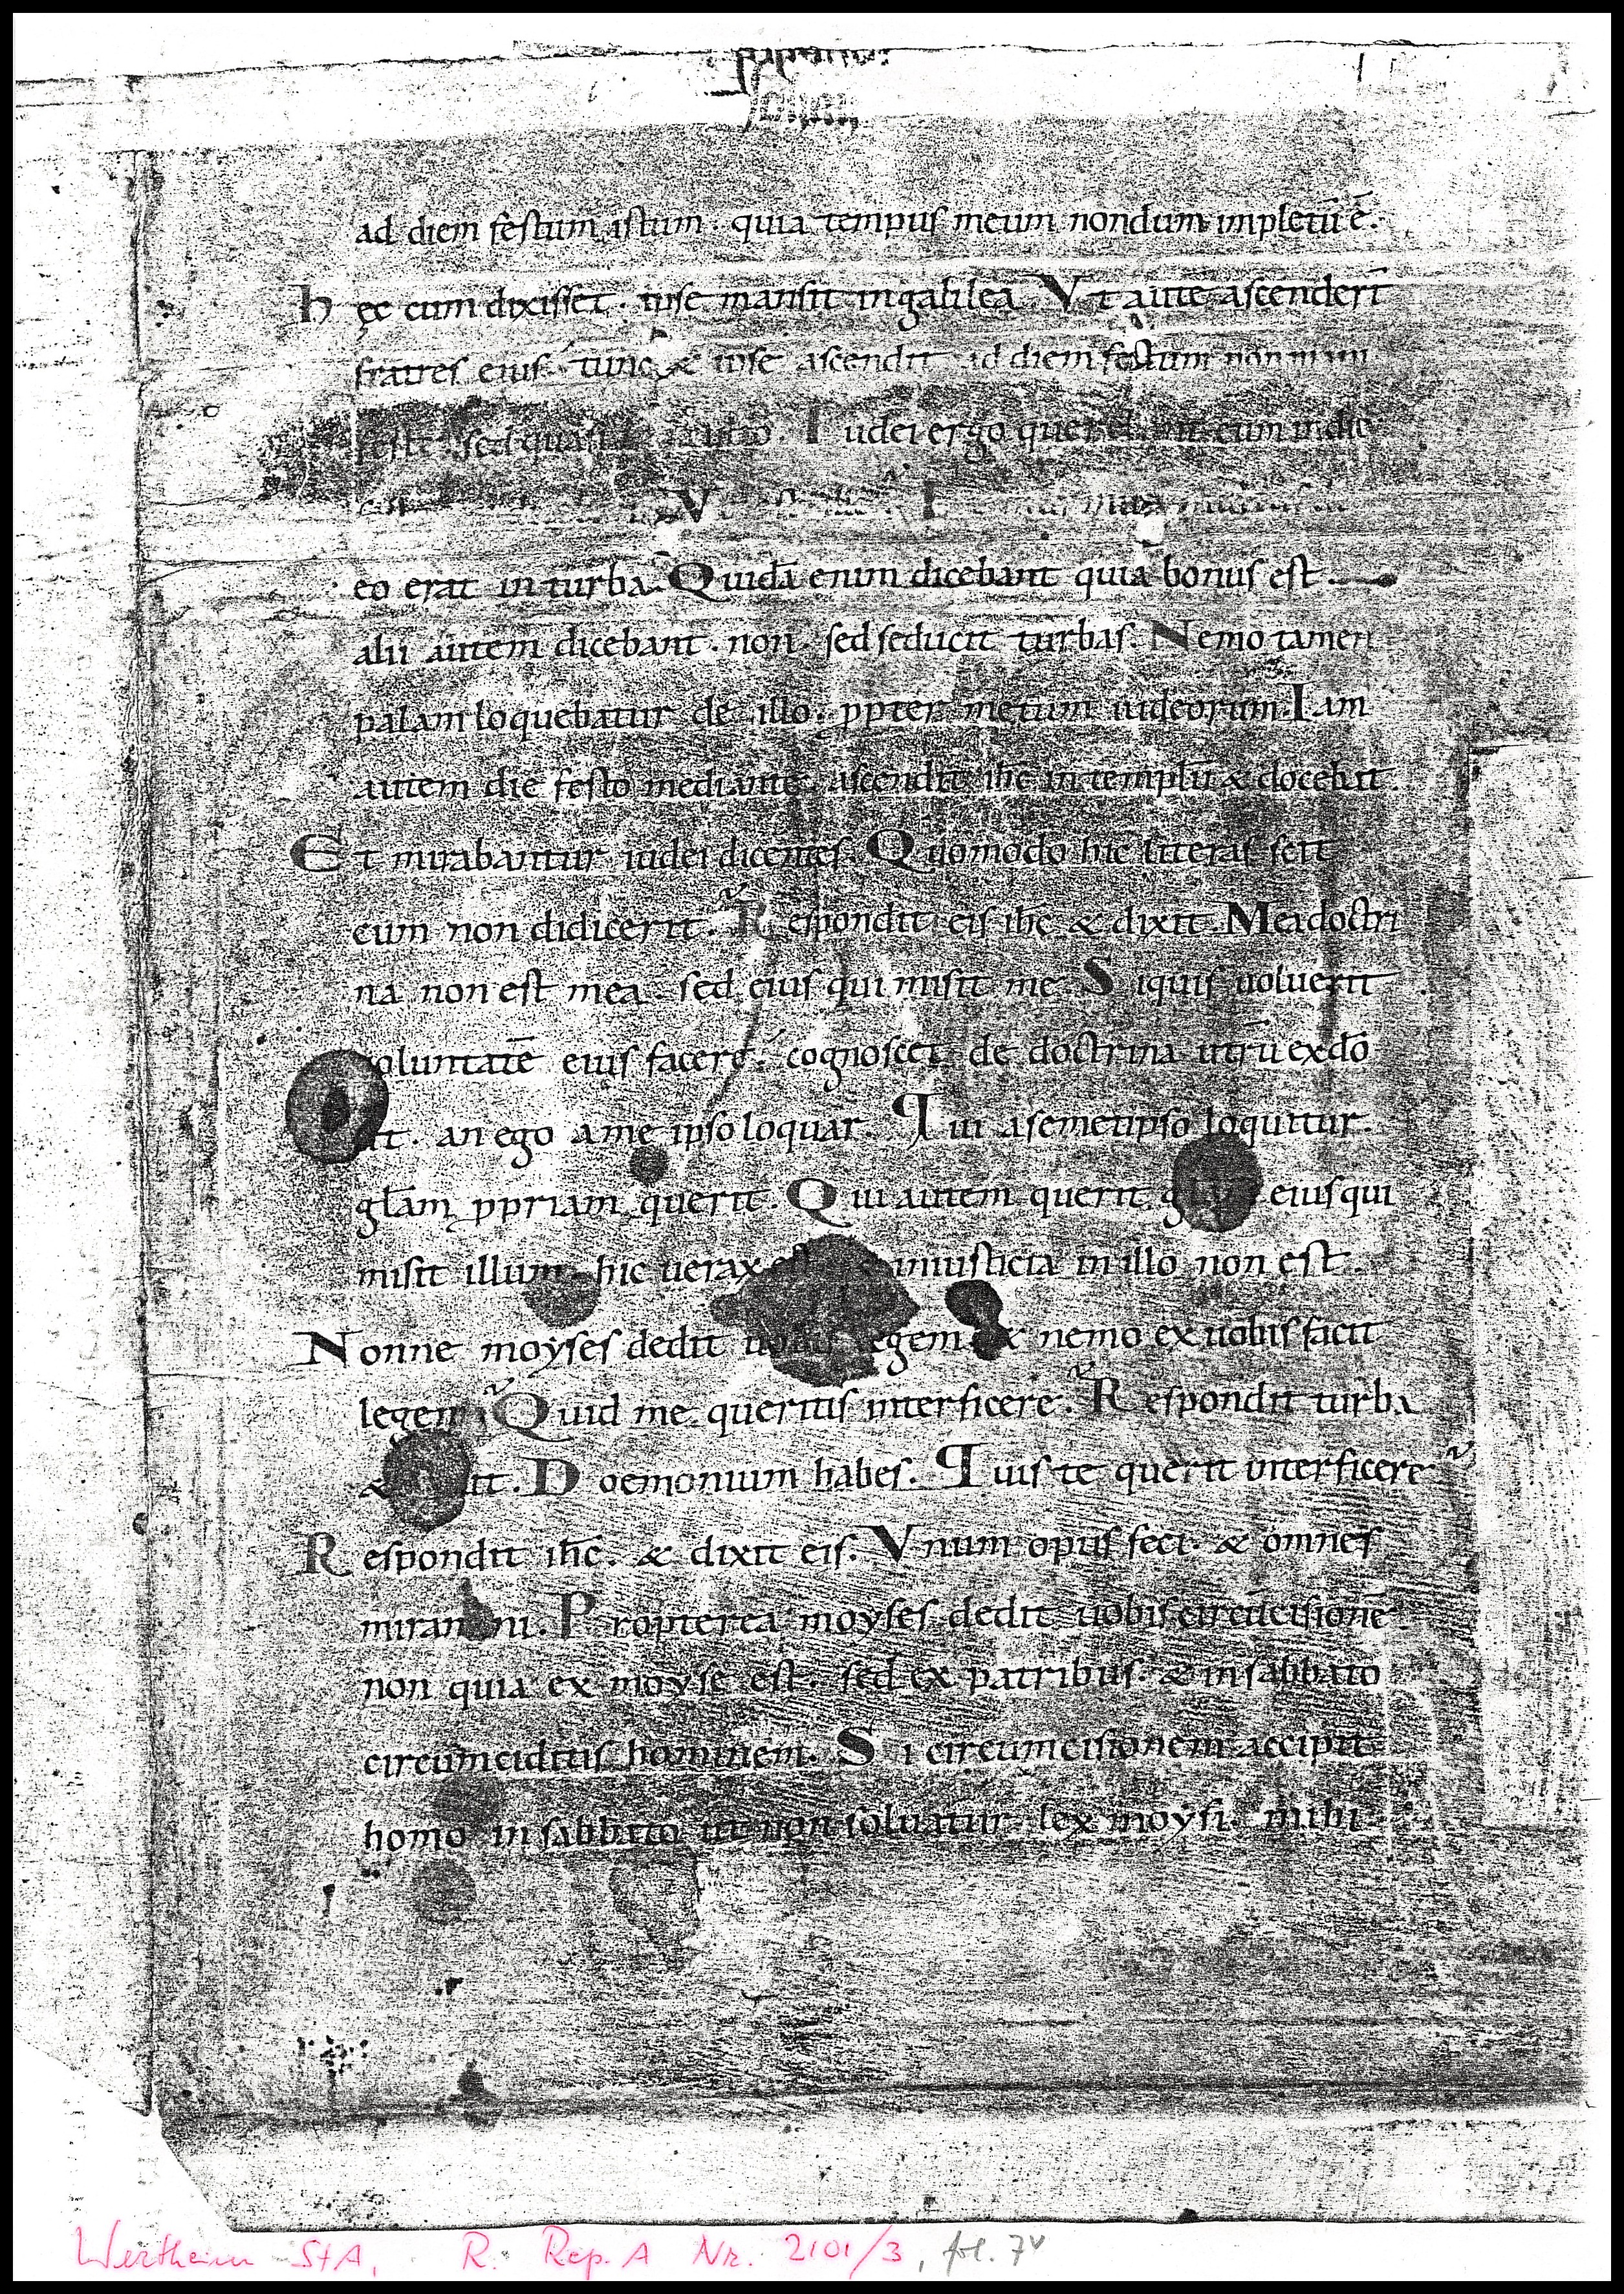 ad diem festum istum. quia tempus meum nondum impletū ē.
hęc cum dixisset. ipse mansit in galilea. Vt autē ascenderī
fratres eius. tunc & ipse ascendit ad diem festum non
sed quasi Iudei ergo eum in die
V I
eo erat in turba. Quidā enim dicebant quia bonus est.
alii autem dicebant. non. sed seducit turbas. Nemo tamen
palam loquebatur de illo. ppter metum iudeorum. Iam
autem die festo mediante. ascendit ihc̄ in templū & docebat.
Et mirabantur iudei dicentes. Quomodo hic literas scit
cum non didicerit. Respondit eis ihc̄ & dixit. Mea doctri
na non est mea. sed eius qui misit me. Siquis uoluerit
oluntatē eius facere. cognoscet de doctrina utrū exdō
it. an ego ame ipso loquar. Qui asemetipso loquitur.
głam ppriam querit. Qui autem querit eius qui
misit illum. hic uerax iniusticia in illo non est.
Nonne moyses dedit legem & nemo ex uobis facit
legem. Quid me queritis interficere. Respondit turba
& it. Doemonium habes. Quis te querit interficere
Respondit ihc̄. & dixit eis. Vnum opus feci. & omnes
miramini. Propterea moyses dedit uobis circūcisionē
non quia ex moyse est. sed ex patribus. & in sabbato
circumciditis hominem. Si circumcisionem accipit
homo in sabbato ut non soluatur lex moysi. mihi
Wertheim StA, R. Rep. A Nr. 2101/3, fol. 7v